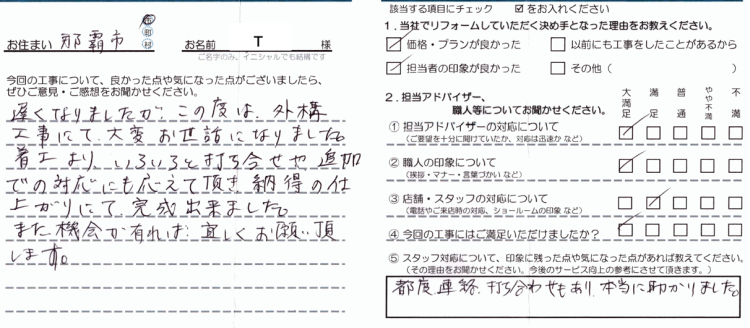 市
町
村
お住まい 那覇市
お名前 T 様
ご名字のみ、イニシャルでも結構です
今回の工事について、良かった点や気になった点がございましたら、
ぜひご意見・ご感想をお聞かせください。
遅くなりましたが、この度は、外構
工事にて、大変お世話になりました。
着工より、いろいろと打ち合せや追加
での対応にも応えて頂き納得の仕
上がりにて、完成出来ました。
また機会が有れば、宜しくお願い頂
します。
該当する項目にチェック ☑ をお入れください
1. 当社でリフォームしていただく決め手となった理由をお教えください。
☑ 価格・プランが良かった □ 以前にも工事をしたことがあるから
☑ 担当者の印象が良かった □ その他 ( )
2. 担当アドバイザー、
職人等についてお聞かせください。
大満足 満足 普通 やや不満 不満
① 担当アドバイザーの対応について ☑ □ □ □ □
(ご要望を十分に聞けていたか、対応は迅速か など)
② 職人の印象について ☑ □ □ □ □
(挨拶・マナー・言葉づかい など)
③ 店舗・スタッフの対応について □ ☑ □ □ □
(電話やご来店時の対応、ショールームの印象 など)
④ 今回の工事にはご満足いただけましたか? ☑ □ □ □ □
⑤ スタッフ対応について、印象に残った点や気になった点があれば教えてください。
(その理由をお聞かせください。今後のサービス向上の参考にさせて頂きます。)
都度連絡、打ち合わせもあり、本当に助かりました。